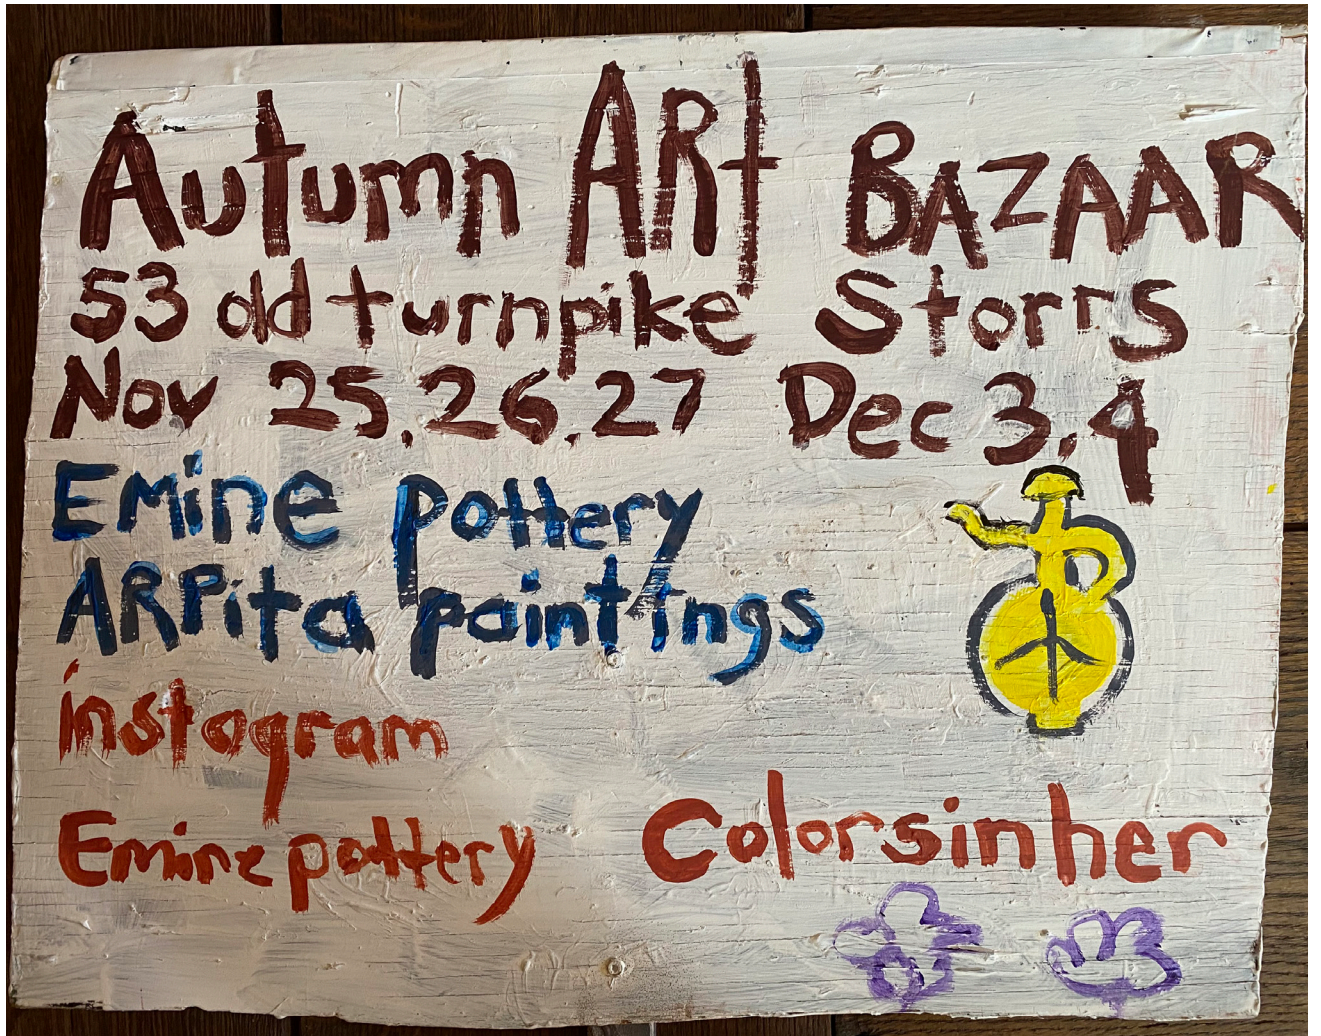 Autumn ARt BAZAAR
53 old turnpike Storrs
Nov 25.26.27 Dec 3.4
Emine pottery
ARPita paintings
instagram
Emine pottery Colorsinher